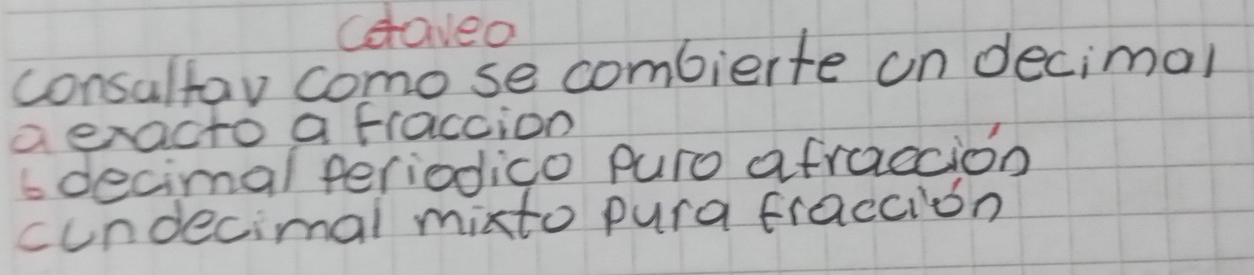 consultar como se combierte un decimal
a exacto a fraccion
b decimal periodico puro a fracción
c un decimal mixto pura fracción